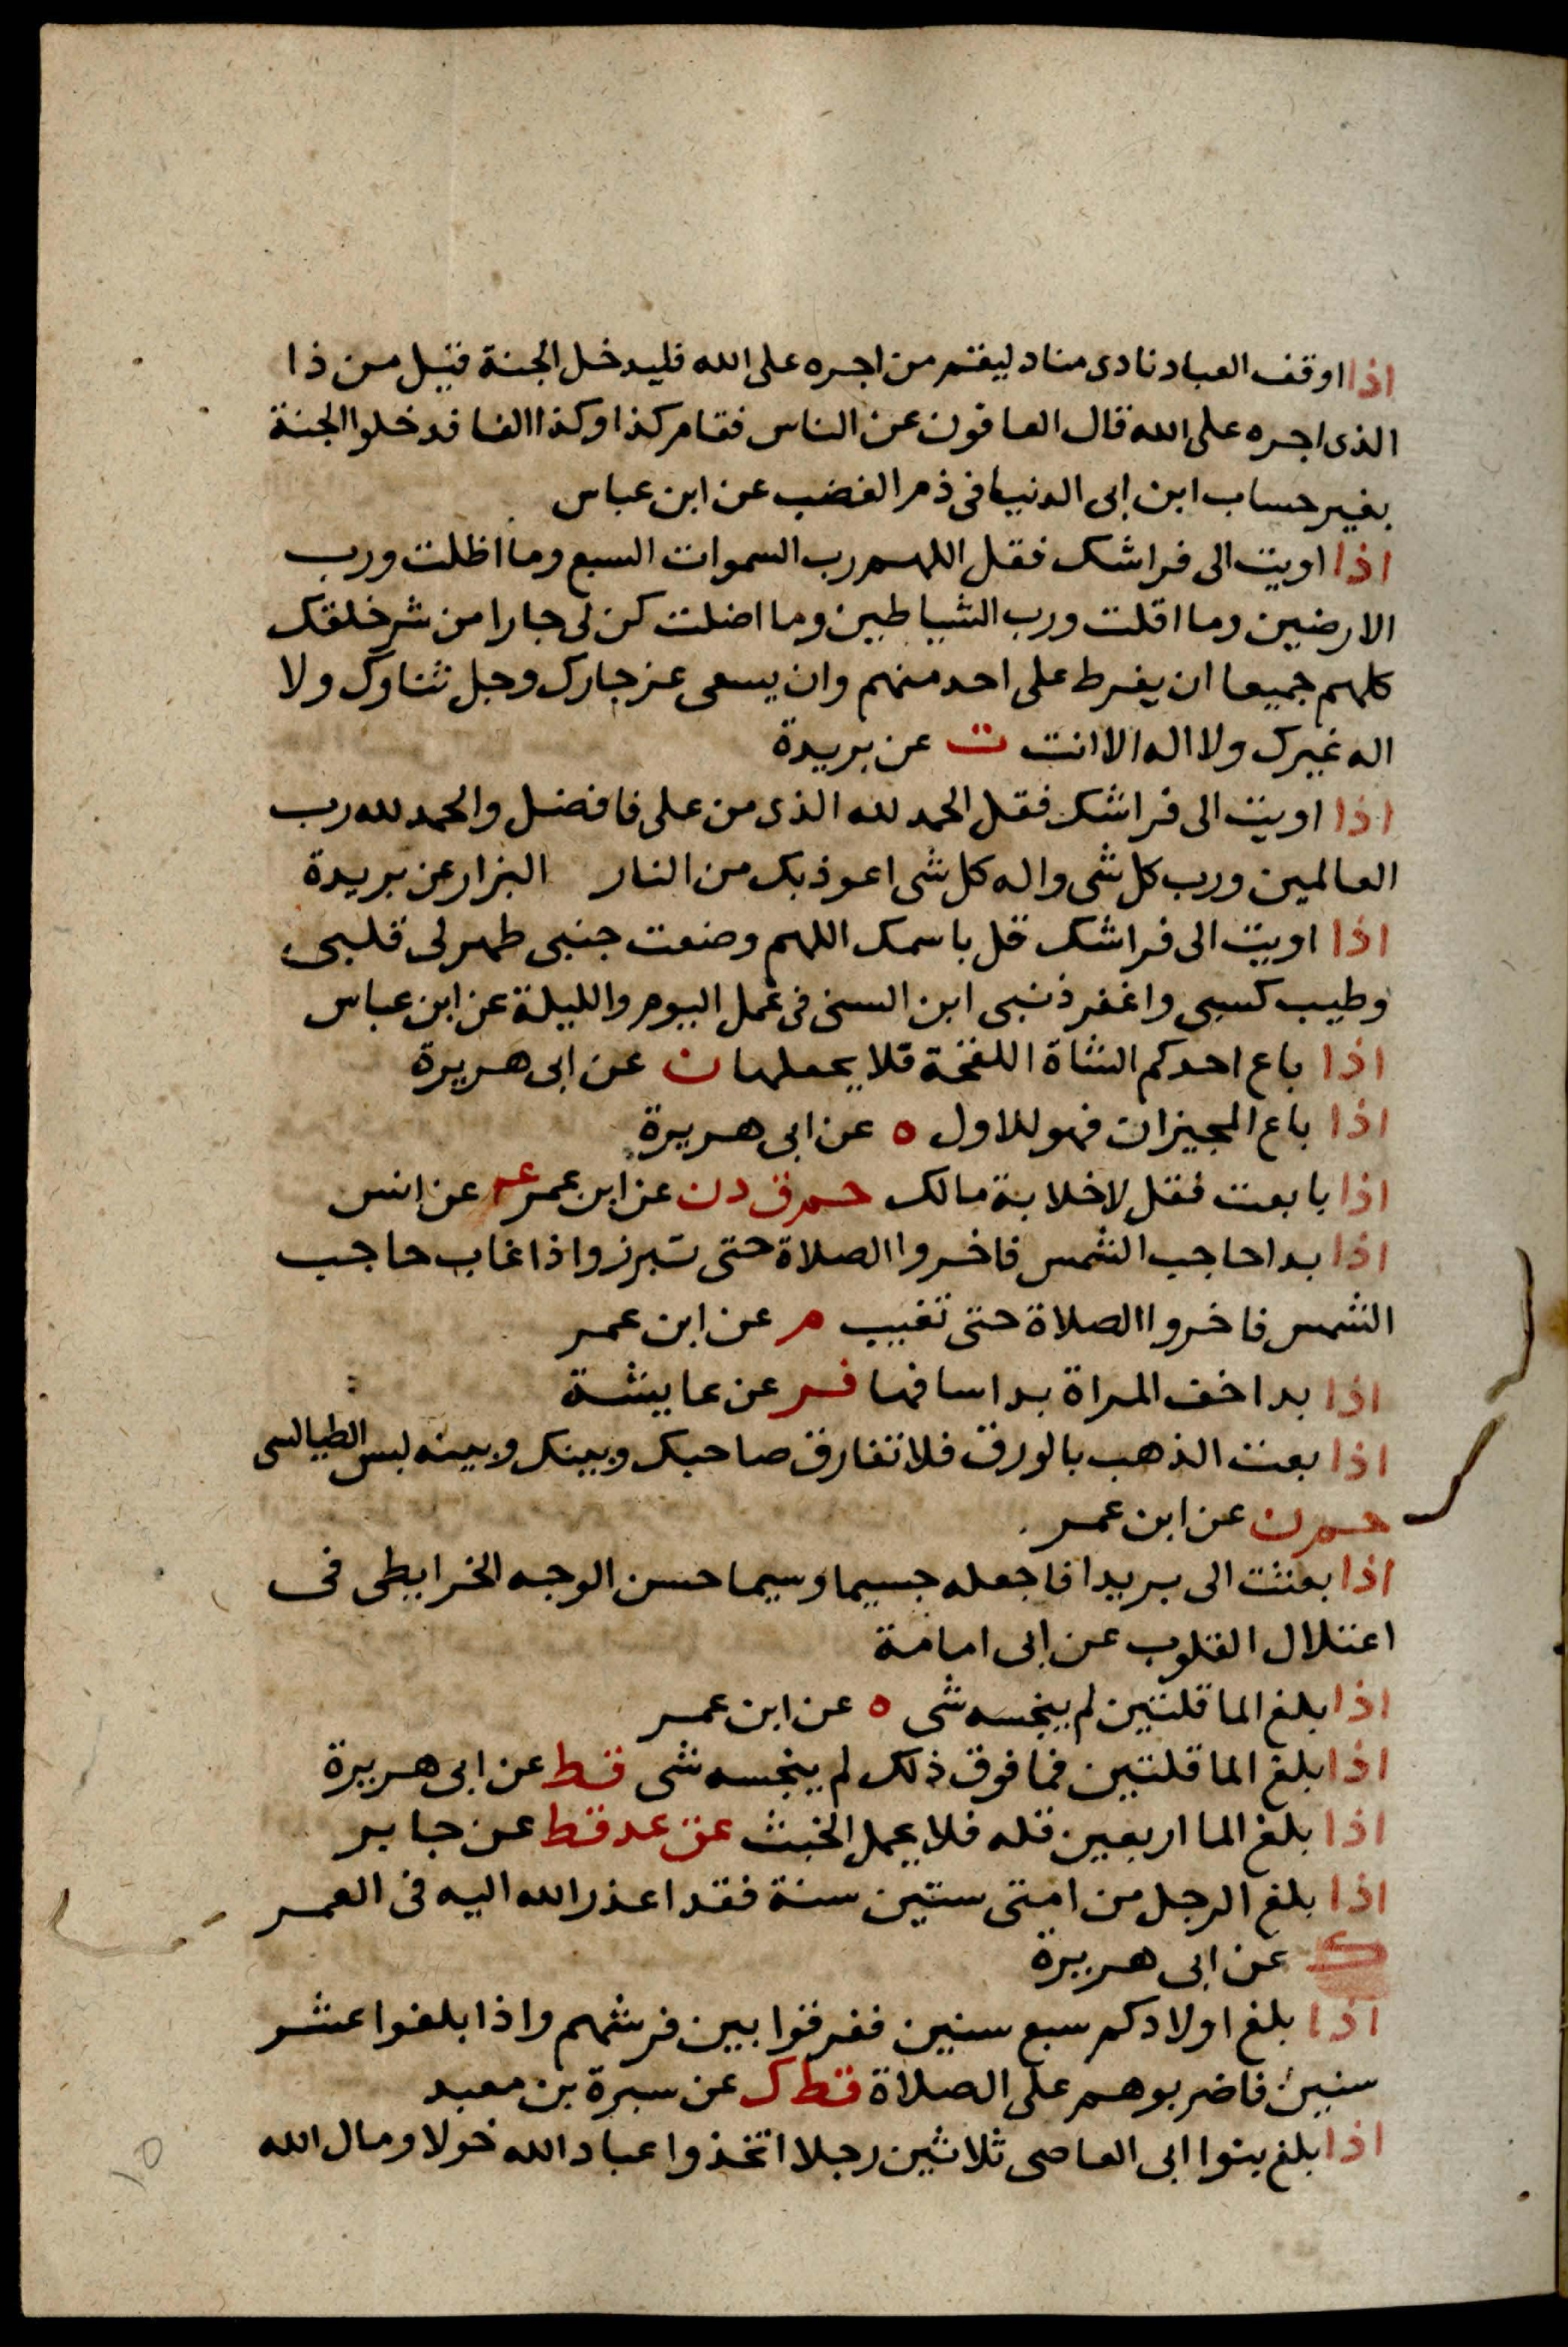 اذا اوقف العباد نادى مناد ليقم من اجره على الله فليدخل الجنة قيل من ذا
الذى اجره على الله قال العافون عن الناس فقام كذا وكذا الفا فدخلوا الجنة
بغير حساب ابن ابى الدنيا فى ذم الغضب عن ابن عباس
اذا اويت الى فراشك فقل اللهم رب السموات السبع وما اظلت ورب
الارضين وما اقلت ورب الشياطين وما اضلت كن لى جارا من شر خلقك
كلهم جميعا ان يفرط على احد منهم وان يسعى عز جارك وجل ثناوك ولا
اله غيرك ولا اله الا انت ت عن بريدة
اذا اويت الى فراشك فقل الحمد لله الذى من على فافضل والحمد لله رب
العالمين ورب كل شى واله كل شى اعوذ بك من النار البزار عن بريدة
اذا اويت الى فراشك قل باسمك اللهم وضعت جنبى طهر لى قلبى
وطيب كسبى واغفر ذنبى ابن السنى فى عمل اليوم والليلة عن ابن عباس
اذا باع احدكم الشاة اللقحة فلا يحعلها ن عن ابى هريرة
اذا باع المجيزان فهو للاول ه عن ابى هريرة
اذا بايعت فقل لاخلابة مالك حم ق د ن عن ابن عمر عه عن انس
اذا بدا حاجب الشمس فاخروا الصلاة حتى تبرز واذا غاب حاجب
الشمس فاخروا الصلاة حتى تغيب م عن ابن عمر
اذا بدا خف المراة بدا ساقها فر عن عايشة
اذا بعت الذهب بالورق فلا تفارق صاحبك وبينك وبينه لبس الطيالسى
حم ن عن ابن عمر
اذا بعثت الى بريدا فاجعله جسيما وسيما حسن الوجه الخرايطى فى
اعتلال القلوب عن ابى امامة
اذا بلغ الما قلتين لم ينجسه شى ه عن ابن عمر
اذا بلغ الما قلتين فما فوق ذلك لم ينجسه شى قط عن ابى هريرة
اذا بلغ الما اربعين قله فلا يحمل الخبث عق عد قط عن جابر
اذا بلغ الرجل من امتى ستين سنة فقد اعذر الله اليه فى العمر
ك عن ابى هريرة
اذا بلغ اولادكم سبع سنين ففرقوا بين فرشهم واذا بلغوا عشر
سنين فاضربوهم على الصلاة قط ك عن سبرة بن معبد
اذا بلغ بنوا ابى العاصى ثلاثين رجلا اتخذوا عباد الله خولا ومال الله